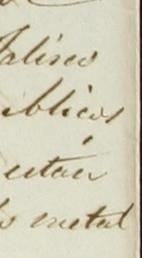 Jalisco
ublicos
estan
s metal